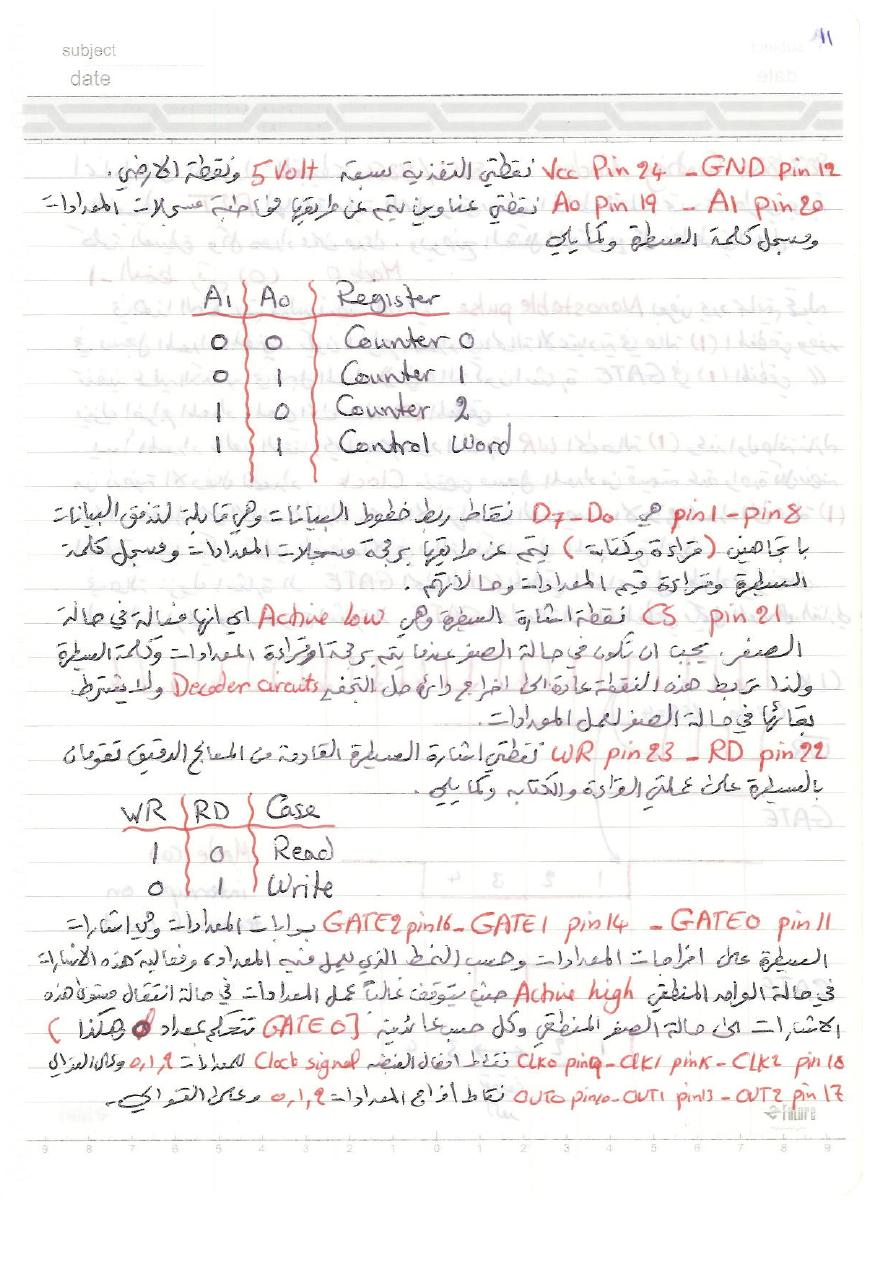 subject
date
11
Vcc Pin 24 - GND pin 12 نقطتي التغذية بسعة 5 Volt ونقطة الارضي.
A0 pin 19 - A1 pin 20 نقطتي عناوين يتم عن طريقها مخاطبة مسجلات المعدادات
ومسجل كلمة السيطرة وكما يلي
A1 A0 Register
0 0 Counter 0
0 1 Counter 1
1 0 Counter 2
1 1 Control Word
pin1 - pin8 هي D7-D0 نقاط ربط خطوط البيانات وهي قابلة لتدفق البيانات
باتجاهين (قراءة وكتابة) يتم عن طريقها برمجة مسجلات المعدادات ومسجل كلمة
السيطرة وقراءة قيم المعدادات وحالاتهم.
CS pin 21 نقطة اشارة السيطرة وهي Active low اي انها فعالة في حالة
الصفر. يجب ان تكون في حالة الصفر عندما يتم برمجة او قراءة المعدادات وكلمة السيطرة
ولذا تربط هذه النقطة عادة الى اخراج دائرة حل التجفير Decoder circuits ولا يشترط
بقائها في حالة الصفر لعمل المعدادات.
WR pin 23 - RD pin 22 نقطتي اشارة السيطرة القادمة من المعالج الدقيق تقومان
بالسيطرة على عمليتي القراءة والكتابة وكما يلي.
WR RD Case
1 0 Read
0 1 Write
GATE2 pin16 - GATE1 pin 14 - GATE0 pin 11 بوابات المعدادات وهي اشارات
السيطرة على اخراجات المعدادات وحسب النمط الذي يعمل فيه المعداد، وفعالية هذه الاشارات
في حالة الواحد المنطقي Active high حيث يتوقف غالباً عمل المعدادات في حالة انتقال مستوى هذه
الاشارات الى حالة الصفر المنطقي وكل حسب عائديته [GATE 0 تتحكم بمعداد 0 وهكذا )
CLK0 pin9 - CLK1 pin15 - CLK2 pin 18 نقاط ادخال النبضة Clock signal للمعدادات 0,1,2 وعلى التوالي
OUT0 pin10 - OUT1 pin13 - OUT2 pin 17 نقاط أخراج المعدادات 0,1,2 وعلى التوالي.
Future
9 8 7 6 5 4 3 2 1 0 1 2 3 4 5 6 7 8 9